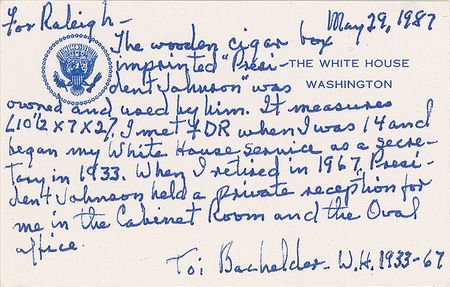 For Raleigh - May 29, 1987
The wooden cigar box
imprinted "Presi-
THE WHITE HOUSE
dent Johnson" was
WASHINGTON
owned and used by him. It measures
(10½ x 7 x 2). I met FDR when I was 14 and
began my White House service as a secre-
tary in 1933. When I retired in 1967, Presi-
dent Johnson held a private reception for
me in the Cabinet Room and the Oval
office.
Toi Bachelder - W.H. 1933-67